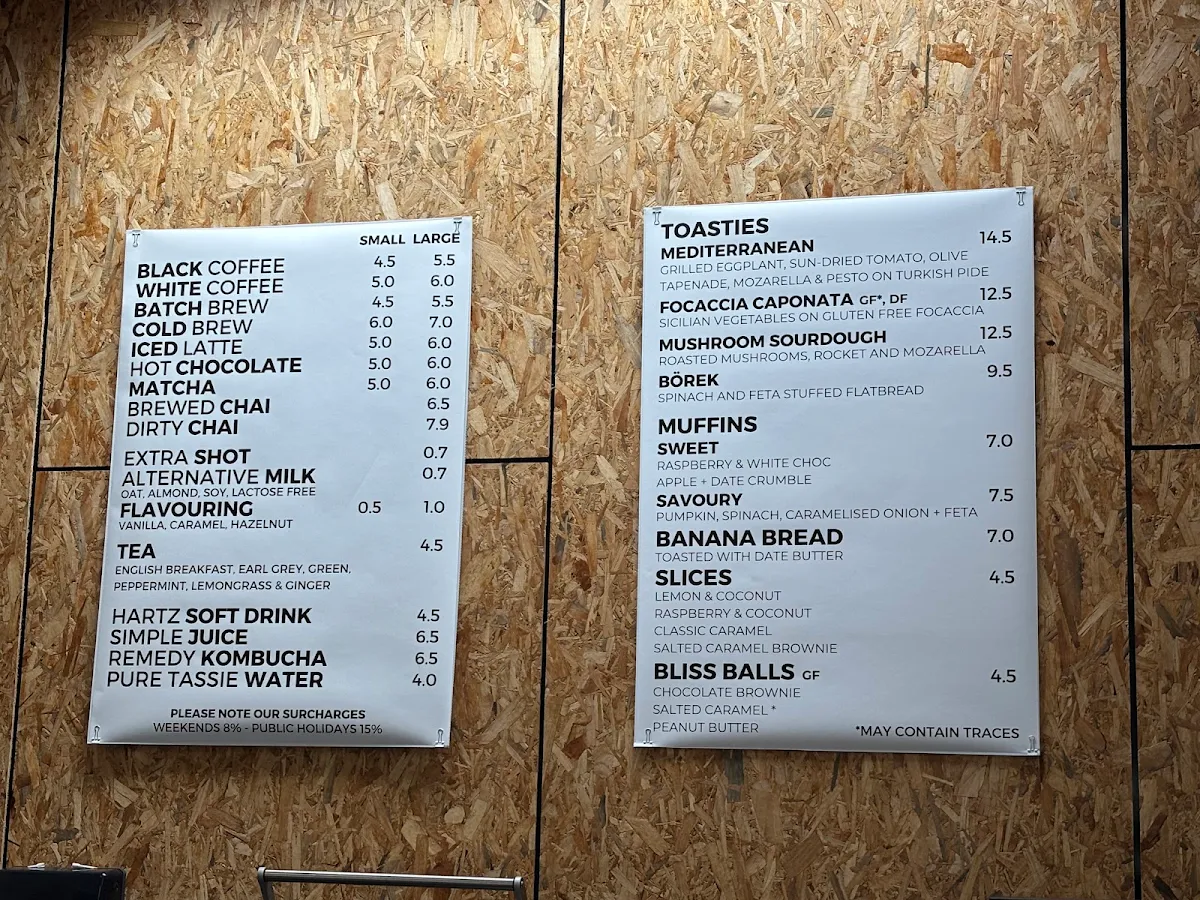 SMALL LARGE
BLACK COFFEE 4.5 5.5
WHITE COFFEE 5.0 6.0
BATCH BREW 4.5 5.5
COLD BREW 6.0 7.0
ICED LATTE 5.0 6.0
HOT CHOCOLATE 5.0 6.0
MATCHA 5.0 6.0
BREWED CHAI 6.5
DIRTY CHAI 7.9
EXTRA SHOT 0.7
ALTERNATIVE MILK 0.7
OAT, ALMOND, SOY, LACTOSE FREE
FLAVOURING 0.5 1.0
VANILLA, CARAMEL, HAZELNUT
TEA 4.5
ENGLISH BREAKFAST, EARL GREY, GREEN,
PEPPERMINT, LEMONGRASS & GINGER
HARTZ SOFT DRINK 4.5
SIMPLE JUICE 6.5
REMEDY KOMBUCHA 6.5
PURE TASSIE WATER 4.0
PLEASE NOTE OUR SURCHARGES
WEEKENDS 8% - PUBLIC HOLIDAYS 15%
TOASTIES
MEDITERRANEAN 14.5
GRILLED EGGPLANT, SUN-DRIED TOMATO, OLIVE
TAPENADE, MOZARELLA & PESTO ON TURKISH PIDE
FOCACCIA CAPONATA GF*, DF 12.5
SICILIAN VEGETABLES ON GLUTEN FREE FOCACCIA
MUSHROOM SOURDOUGH 12.5
ROASTED MUSHROOMS, ROCKET AND MOZARELLA
BÖREK 9.5
SPINACH AND FETA STUFFED FLATBREAD
MUFFINS
SWEET 7.0
RASPBERRY & WHITE CHOC
APPLE + DATE CRUMBLE
SAVOURY 7.5
PUMPKIN, SPINACH, CARAMELISED ONION + FETA
BANANA BREAD 7.0
TOASTED WITH DATE BUTTER
SLICES 4.5
LEMON & COCONUT
RASPBERRY & COCONUT
CLASSIC CARAMEL
SALTED CARAMEL BROWNIE
BLISS BALLS GF 4.5
CHOCOLATE BROWNIE
SALTED CARAMEL*
PEANUT BUTTER
*MAY CONTAIN TRACES